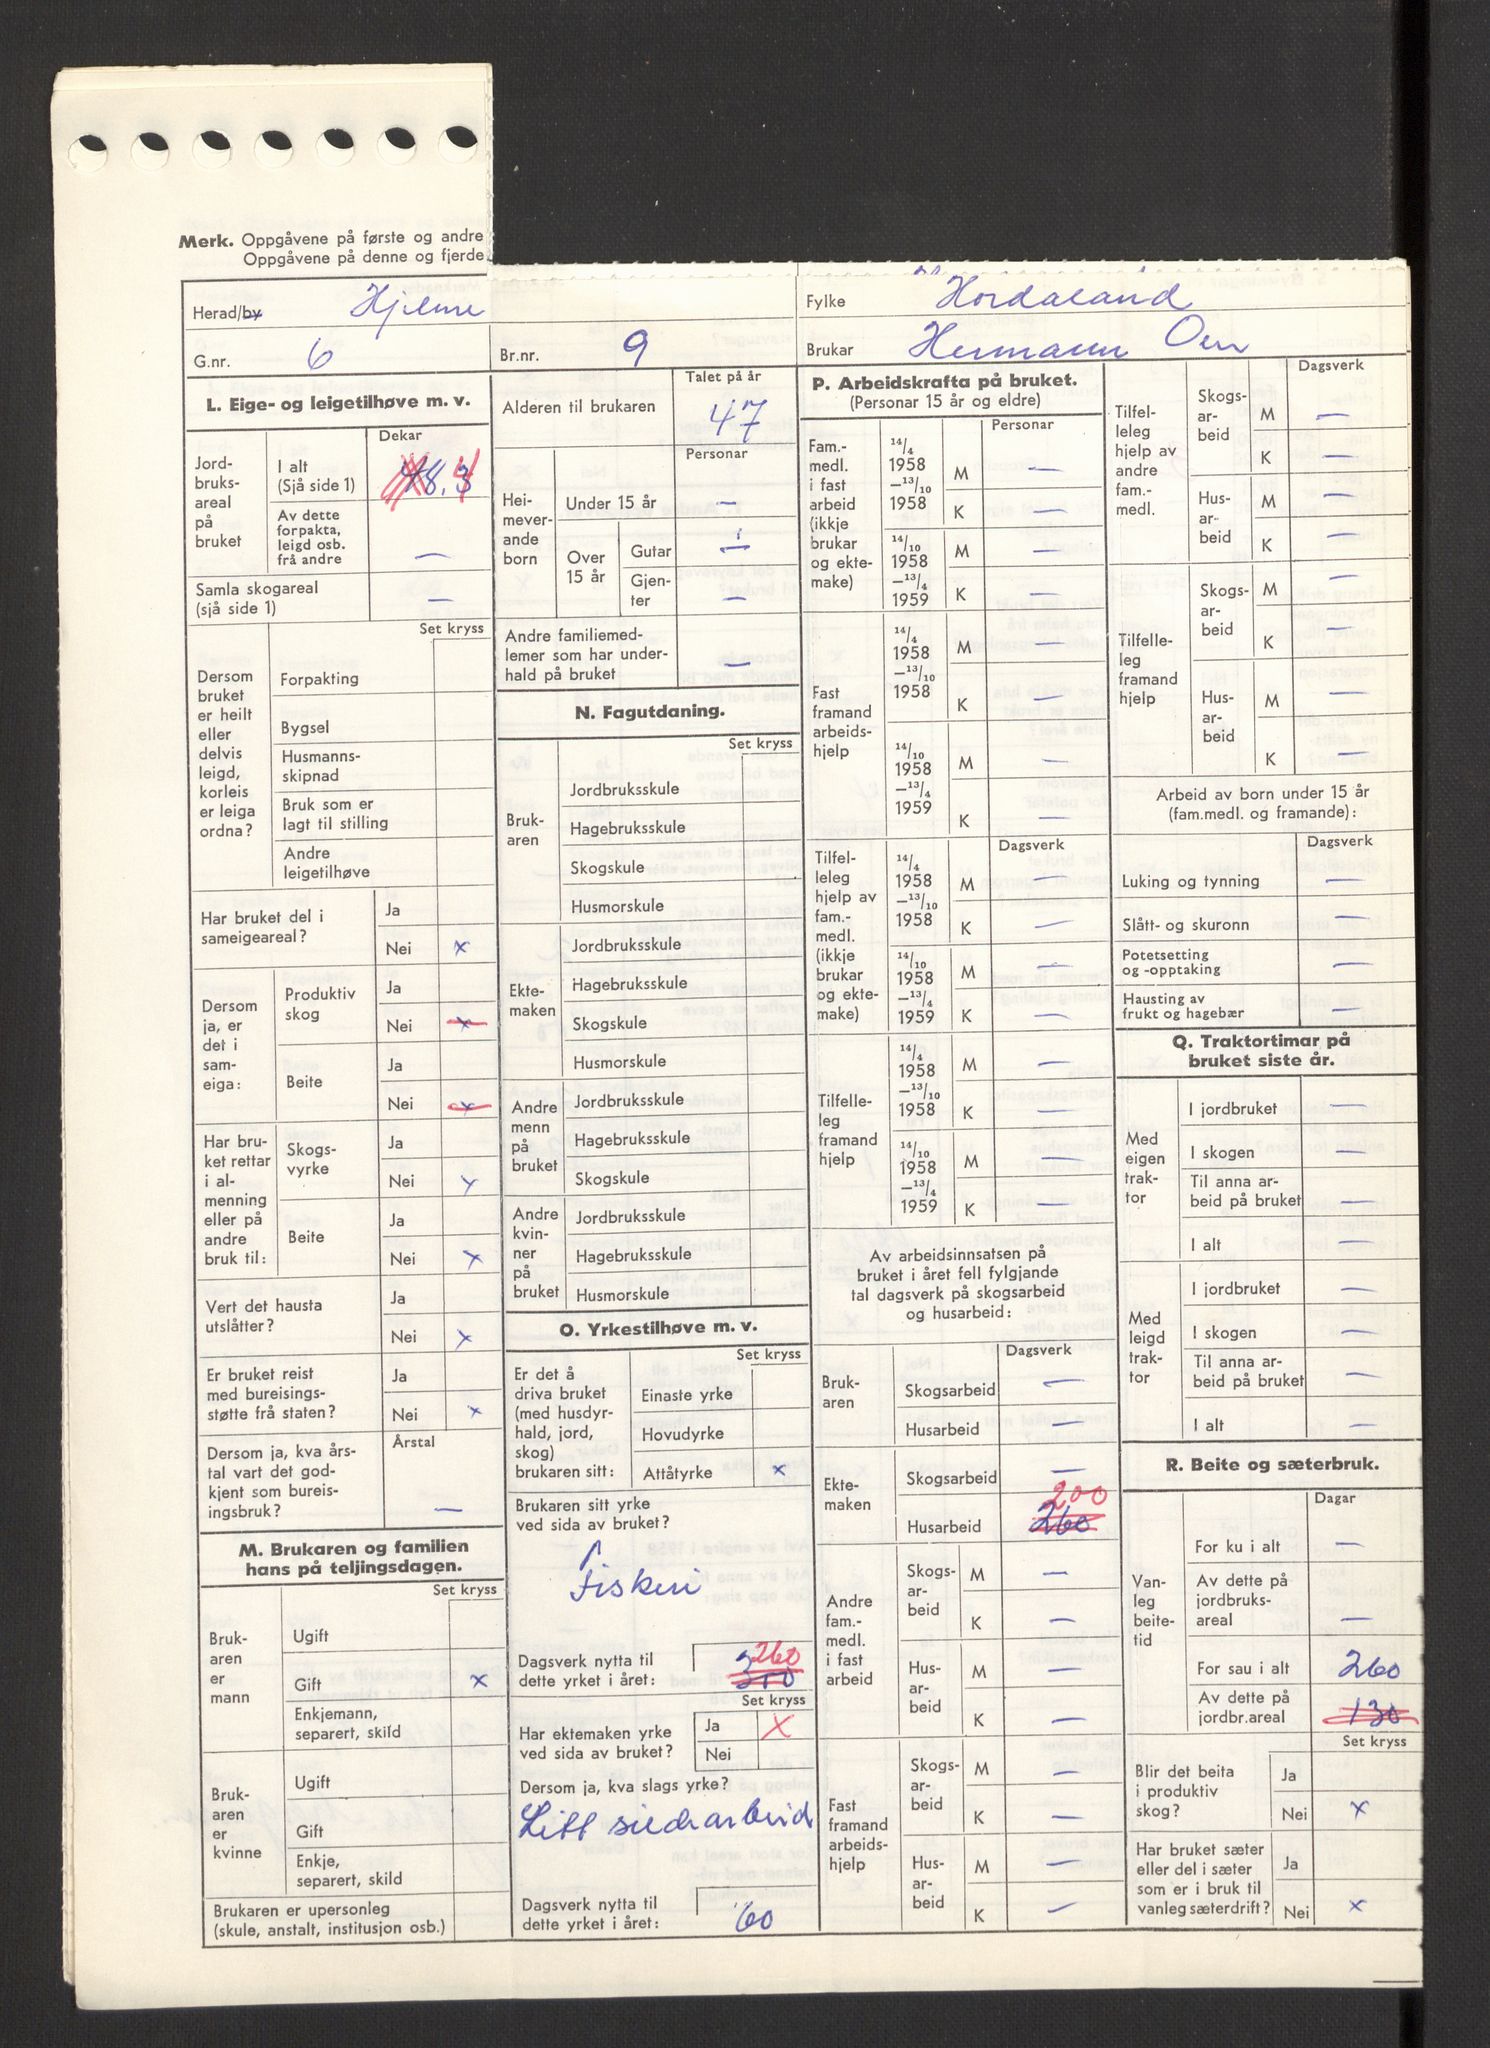 Merk. Oppgåvene på første og andre
Oppgåvene på denne og fjerde
Herad/by Hjelme
Fylke Hordaland
G.nr. 6
Br.nr. 9
Brukar Hermann Oen
L. Eige- og leigetilhøve m. v.
Dekar
Jord-
bruks-
areal
på
bruket
I alt
(Sjå side 1)
Av dette
forpakta,
leigd osb.
frå andre —
Samla skogareal
(sjå side 1) —
Set kryss
Dersom
bruket
er heilt
eller
delvis
leigd,
korleis
er leiga
ordna?
Forpakting
Bygsel
Husmanns-
skipnad
Bruk som er
lagt til stilling
Andre
leigetilhøve
Har bruket del i
sameigeareal?
Ja
Nei x
Dersom
ja, er
det i
sam-
eiga:
Produktiv
skog
Ja
Nei x
Beite
Ja
Nei x
Har bru-
ket rettar
i al-
menning
eller på
andre
bruk til:
Skogs-
vyrke
Ja
Nei x
Beite
Ja
Nei x
Vert det hausta
utslåtter?
Ja
Nei x
Er bruket reist
med bureisings-
støtte frå staten?
Ja
Nei x
Dersom ja, kva års-
tal vart det god-
kjent som bureis-
ingsbruk?
Årstal
—
M. Brukaren og familien
hans på teljingsdagen.
Set kryss
Bruk-
aren
er
mann
Ugift
Gift x
Enkjemann,
separert, skild
Bruk-
aren
er
kvinne
Ugift
Gift
Enkje,
separert, skild
Brukaren er upersonleg
(skule, anstalt, institusjon osb.)
Talet på år
Alderen til brukaren 47
Personar
Hei-
mever-
ande
born
Under 15 år —
Over
15 år
Gutar
Gjen-
ter —
Andre familiemed-
lemer som har under-
hald på bruket —
N. Fagutdaning.
Set kryss
Bruk-
aren
Jordbruksskule
Hagebruksskule
Skogskule
Husmorskule
Ekte-
maken
Jordbruksskule
Hagebruksskule
Skogskule
Husmorskule
Andre
menn
på
bruket
Jordbruksskule
Hagebruksskule
Skogskule
Andre
kvin-
ner
på
bruket
Jordbruksskule
Hagebruksskule
Husmorskule
O. Yrkestilhøve m. v.
Set kryss
Er det å
driva bruket
(med husdyr-
hald, jord,
skog)
brukaren sitt:
Einaste yrke
Hovudyrke
Attåtyrke x
Brukaren sitt yrke
ved sida av bruket?
Fiskeri
Dagsverk nytta til
dette yrket i året:
260
300
Set kryss
Har ektemaken yrke
ved sida av bruket?
Ja x
Nei
Dersom ja, kva slags yrke?
Litt sildarbeid
Dagsverk nytta til
dette yrket i året: 60
P. Arbeidskrafta på bruket.
(Personar 15 år og eldre)
Personar
Fam.-
medl.
i fast
arbeid
(ikkje
brukar
og ekte-
make)
14/4
1958
—13/10
1958
M —
K —
14/10
1958
—13/4
1959
M —
K —
Fast
framand
arbeids-
hjelp
14/4
1958
—13/10
1958
M —
K —
14/10
1958
—13/4
1959
M —
K —
Dagsverk
Tilfel-
leleg
hjelp av
fam.-
medl.
(ikkje
brukar
og ekte-
make)
14/4
1958
—13/10
1958
M —
K —
14/10
1958
—13/4
1959
M —
K —
Tilfelle-
leg
framand
hjelp
14/4
1958
—13/10
1958
M —
K —
14/10
1958
—13/4
1959
M —
K —
Av arbeidsinnsatsen på
bruket i året fell fylgjande
tal dagsverk på skogsarbeid
og husarbeid:
Dagsverk
Bruk-
aren
Skogsarbeid —
Husarbeid —
Ekte-
maken
Skogsarbeid —
200
Husarbeid 260
Andre
fam.-
medl.
i fast
arbeid
Skogs-
ar-
beid
M —
K —
Hus-
ar-
beid
M —
K —
Fast
framand
arbeids-
hjelp
Skogs-
ar-
beid
M —
K —
Hus-
ar-
beid
M —
K —
Dagsverk
Tilfel-
leleg
hjelp av
andre
fam.-
medl.
Skogs-
ar-
beid
M —
K —
Hus-
ar-
beid
M —
K —
Tilfelle-
leg
framand
hjelp
Skogs-
ar-
beid
M —
K —
Hus-
ar-
beid
M —
K —
Arbeid av born under 15 år
(fam.medl. og framande):
Dagsverk
Luking og tynning —
Slått- og skuronn —
Potetsetting
og -opptaking —
Hausting av
frukt og hagebær —
Q. Traktortimar på
bruket siste år.
Med
eigen
trak-
tor
I jordbruket —
I skogen —
Til anna ar-
beid på bruket —
I alt —
Med
leigd
trak-
tor
I jordbruket —
I skogen —
Til anna ar-
beid på bruket —
I alt —
R. Beite og sæterbruk.
Dagar
Van-
leg
beite-
tid
For ku i alt —
Av dette på
jordbruks-
areal —
For sau i alt 260
Av dette på
jordbr.areal 130
Set kryss
Blir det beita
i produktiv
skog?
Ja
Nei x
Har bruket sæter
eller del i sæter
som er i bruk til
vanleg sæterdrift?
Ja
Nei x